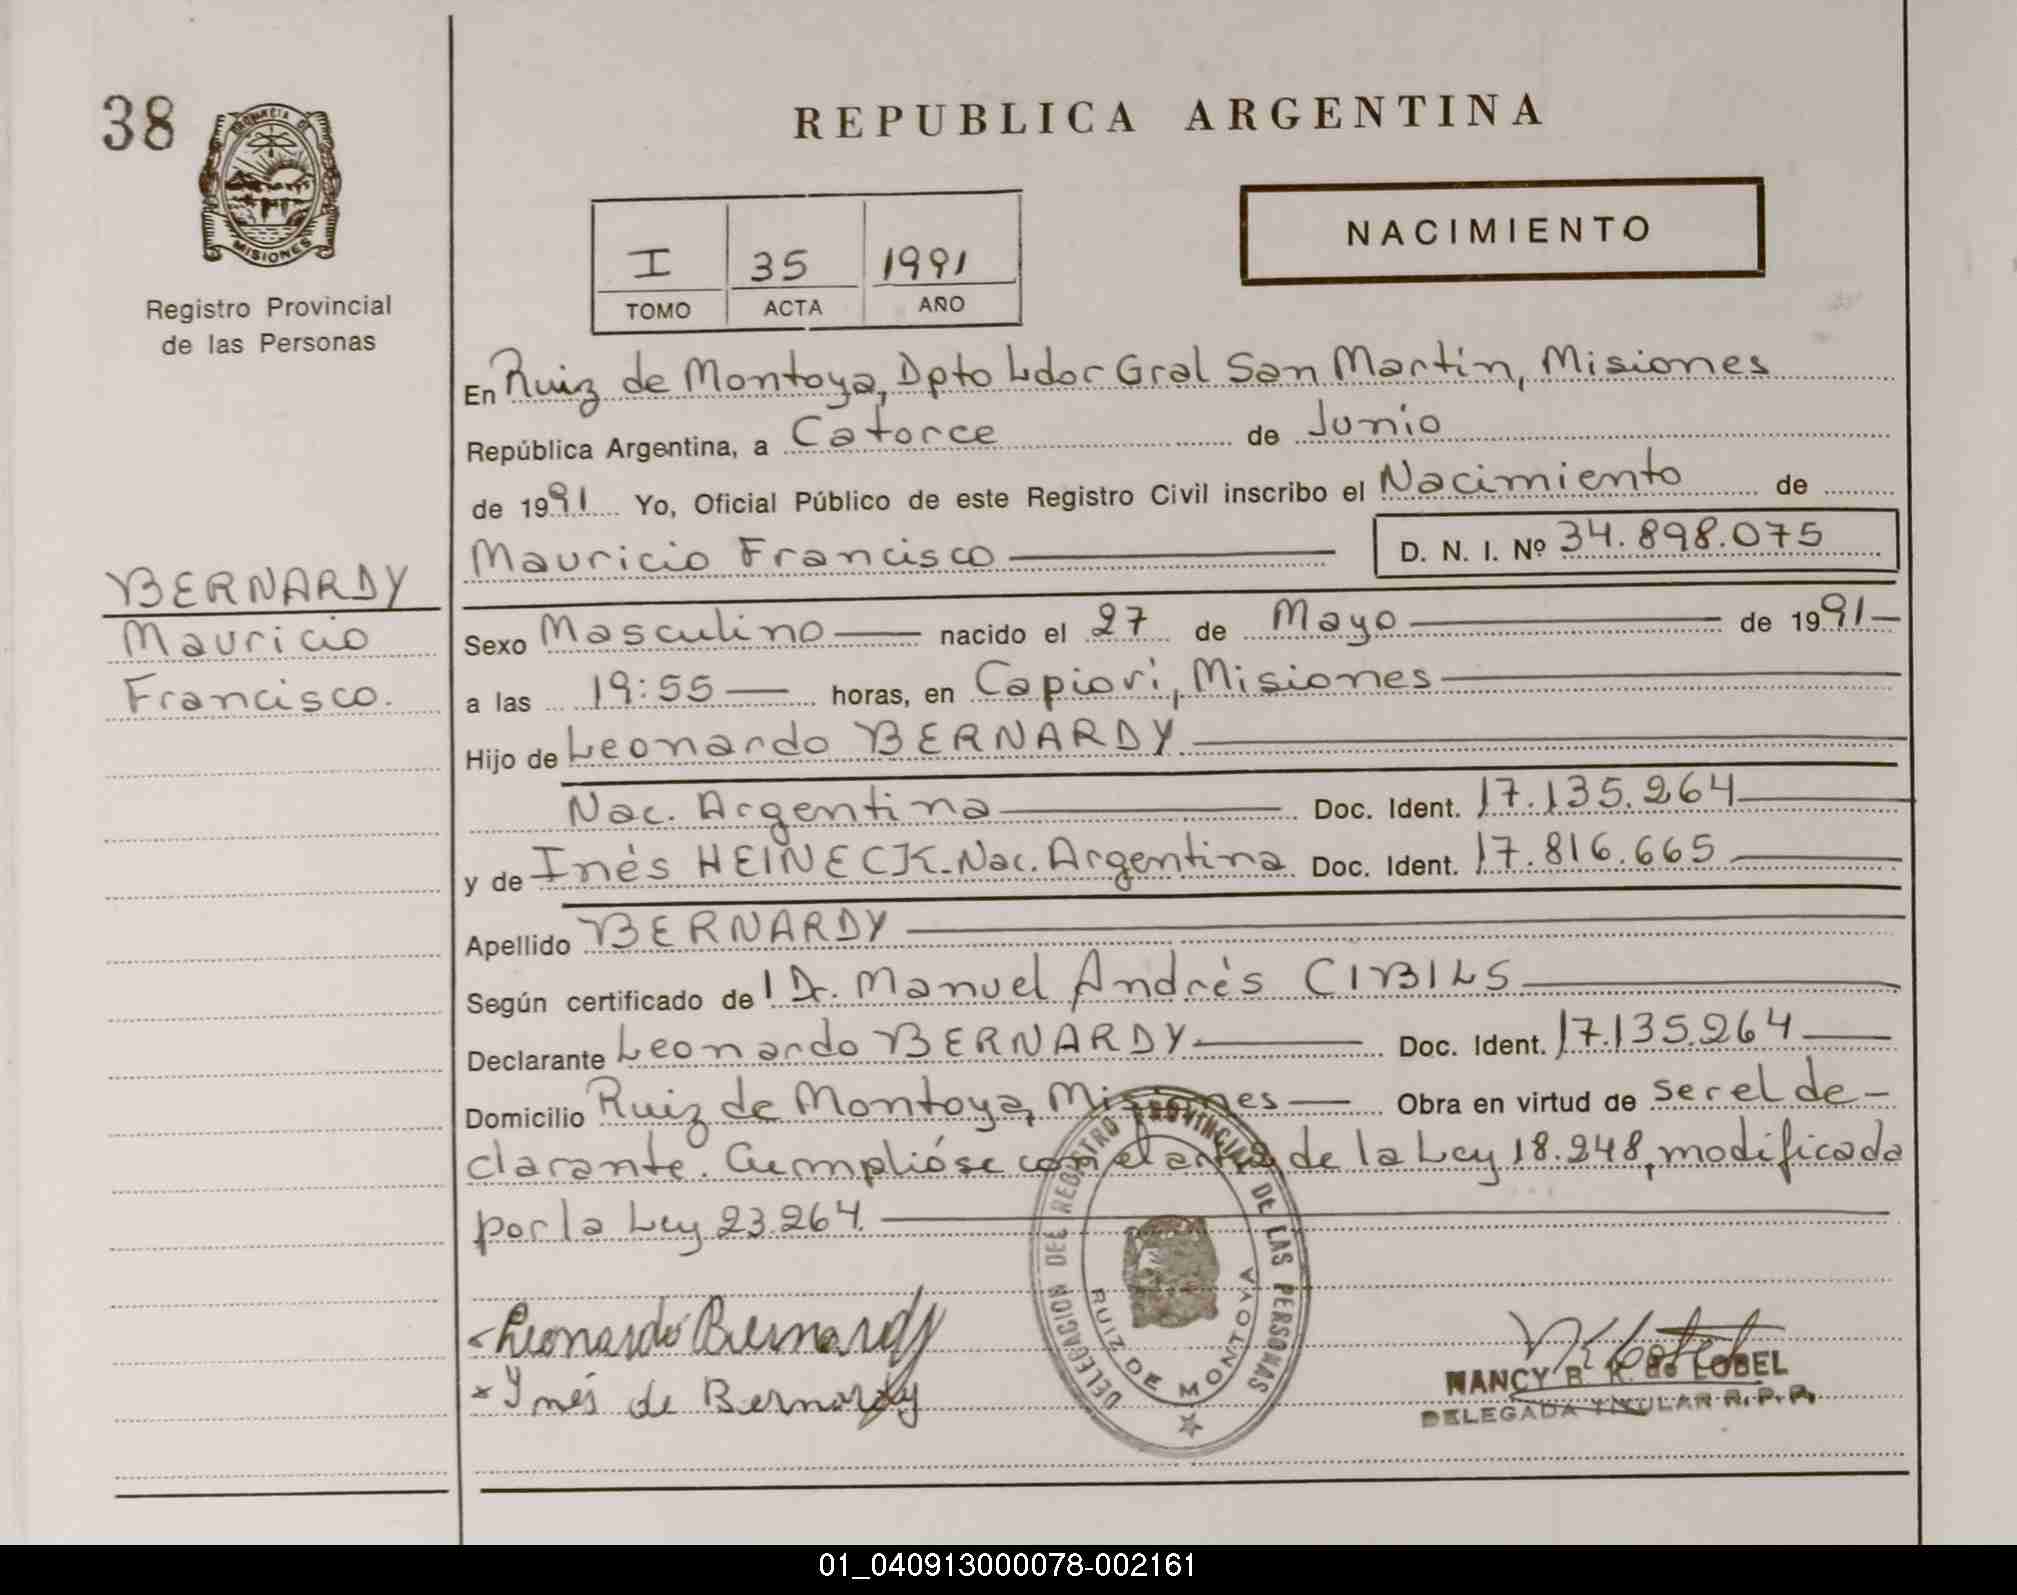 38
PROVINCIA DE
MISIONES
Registro Provincial
de las Personas
REPUBLICA ARGENTINA
NACIMIENTO
I 35 1991
TOMO ACTA AÑO
En Ruiz de Montoya, Dpto Ldor Gral San Martín, Misiones
República Argentina, a Catorce de Junio
de 1991 Yo, Oficial Público de este Registro Civil inscribo el Nacimiento de
Mauricio Francisco D. N. I. Nº 34.898.075
BERNARDY
Mauricio
Francisco.
Sexo Masculino nacido el 27 de Mayo de 1991
a las 19:55 horas, en Capioví, Misiones
Hijo de Leonardo BERNARDY
Nac. Argentina Doc. Ident. 17.135.264
y de Inés HEINECK. Nac. Argentina Doc. Ident. 17.816.665
Apellido BERNARDY
Según certificado de l Dr. Manuel Andrés CIBILS
Declarante Leonardo BERNARDY Doc. Ident. 17.135.264
Domicilio Ruiz de Montoya, Misiones Obra en virtud de ser el de-
clarante. Cumplióse con el art. de la Ley 18.248, modificada
por la Ley 23.264.
DELEGACION DEL REGISTRO PROVINCIAL DE LAS PERSONAS
RUIZ DE MONTOYA
Leonardo Bernardy
x Ynés de Bernardy
NANCY B. K. de LOBEL
DELEGADA TITULAR R.P.P.
01_040913000078-002161